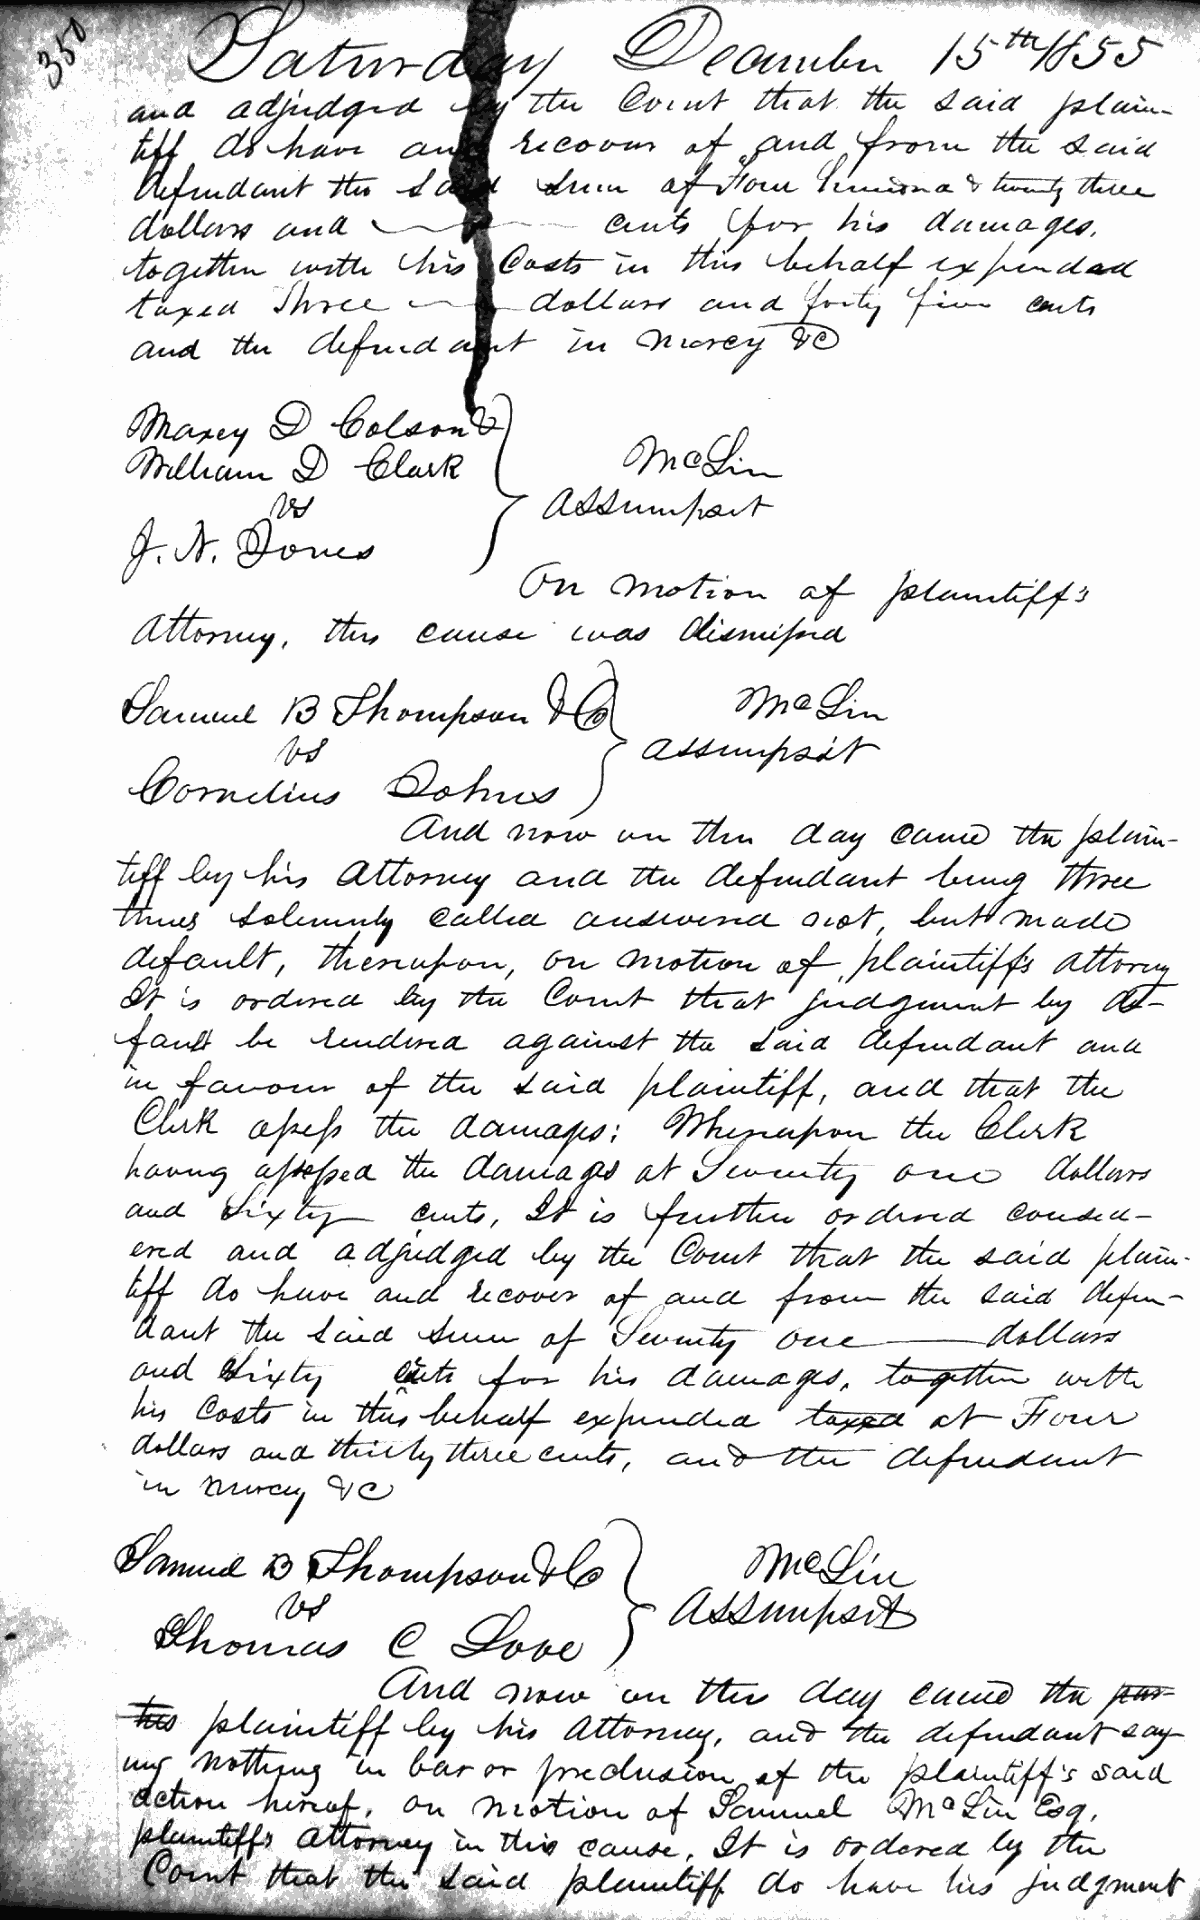 350
Saturday December 15th 1855
and adjudged by the Court that the said plain-
tiff do have and recover of and from the said
defendant the said sum of Four hundred & twenty three
dollars and cents for his damages,
together with his Costs in this behalf expended
taxed Three dollars and forty five cents
and the defendant in mercy &c
Maxey D Colson &
William D Clark
vs
J. N. Jones
McLin
Assumpsit
On motion of plaintiff's
Attorney, this cause was dismissed
Samuel B Thompson & Co
vs
Cornelius Johns
McLin
Assumpsit
And now on this day came the plain-
tiff by his Attorney and the defendant being three
times solemnly called answered not, but made
default, thereupon, on motion of plaintiff's attorney
It is ordered by the Court that judgment by de-
fault be rendered against the said defendant and
in favour of the said plaintiff, and that the
Clerk assess the damages; Whereupon the Clerk
having assessed the damages at Seventy one dollars
and Sixty cents, It is further ordered consid-
ered and adjudged by the Court that the said plain-
tiff do have and recover of and from the said defen-
dant the said sum of Seventy one dollars
and Sixty cents for his damages, together with
his Costs in this behalf expended taxed at Four
dollars and thirty three cents, and the defendant
in mercy &c
Samuel B Thompson & Co
vs
Thomas C Love
McLin
Assumpsit
And now on this day came the par-
ties plaintiff by his Attorney, and the defendant say
ing nothing in bar or preclusion of the plaintiff's said
action hereof, on motion of Samuel McLin Esq,
plaintiff's attorney in this cause, It is ordered by the
Court that the said plaintiff do have his judgment